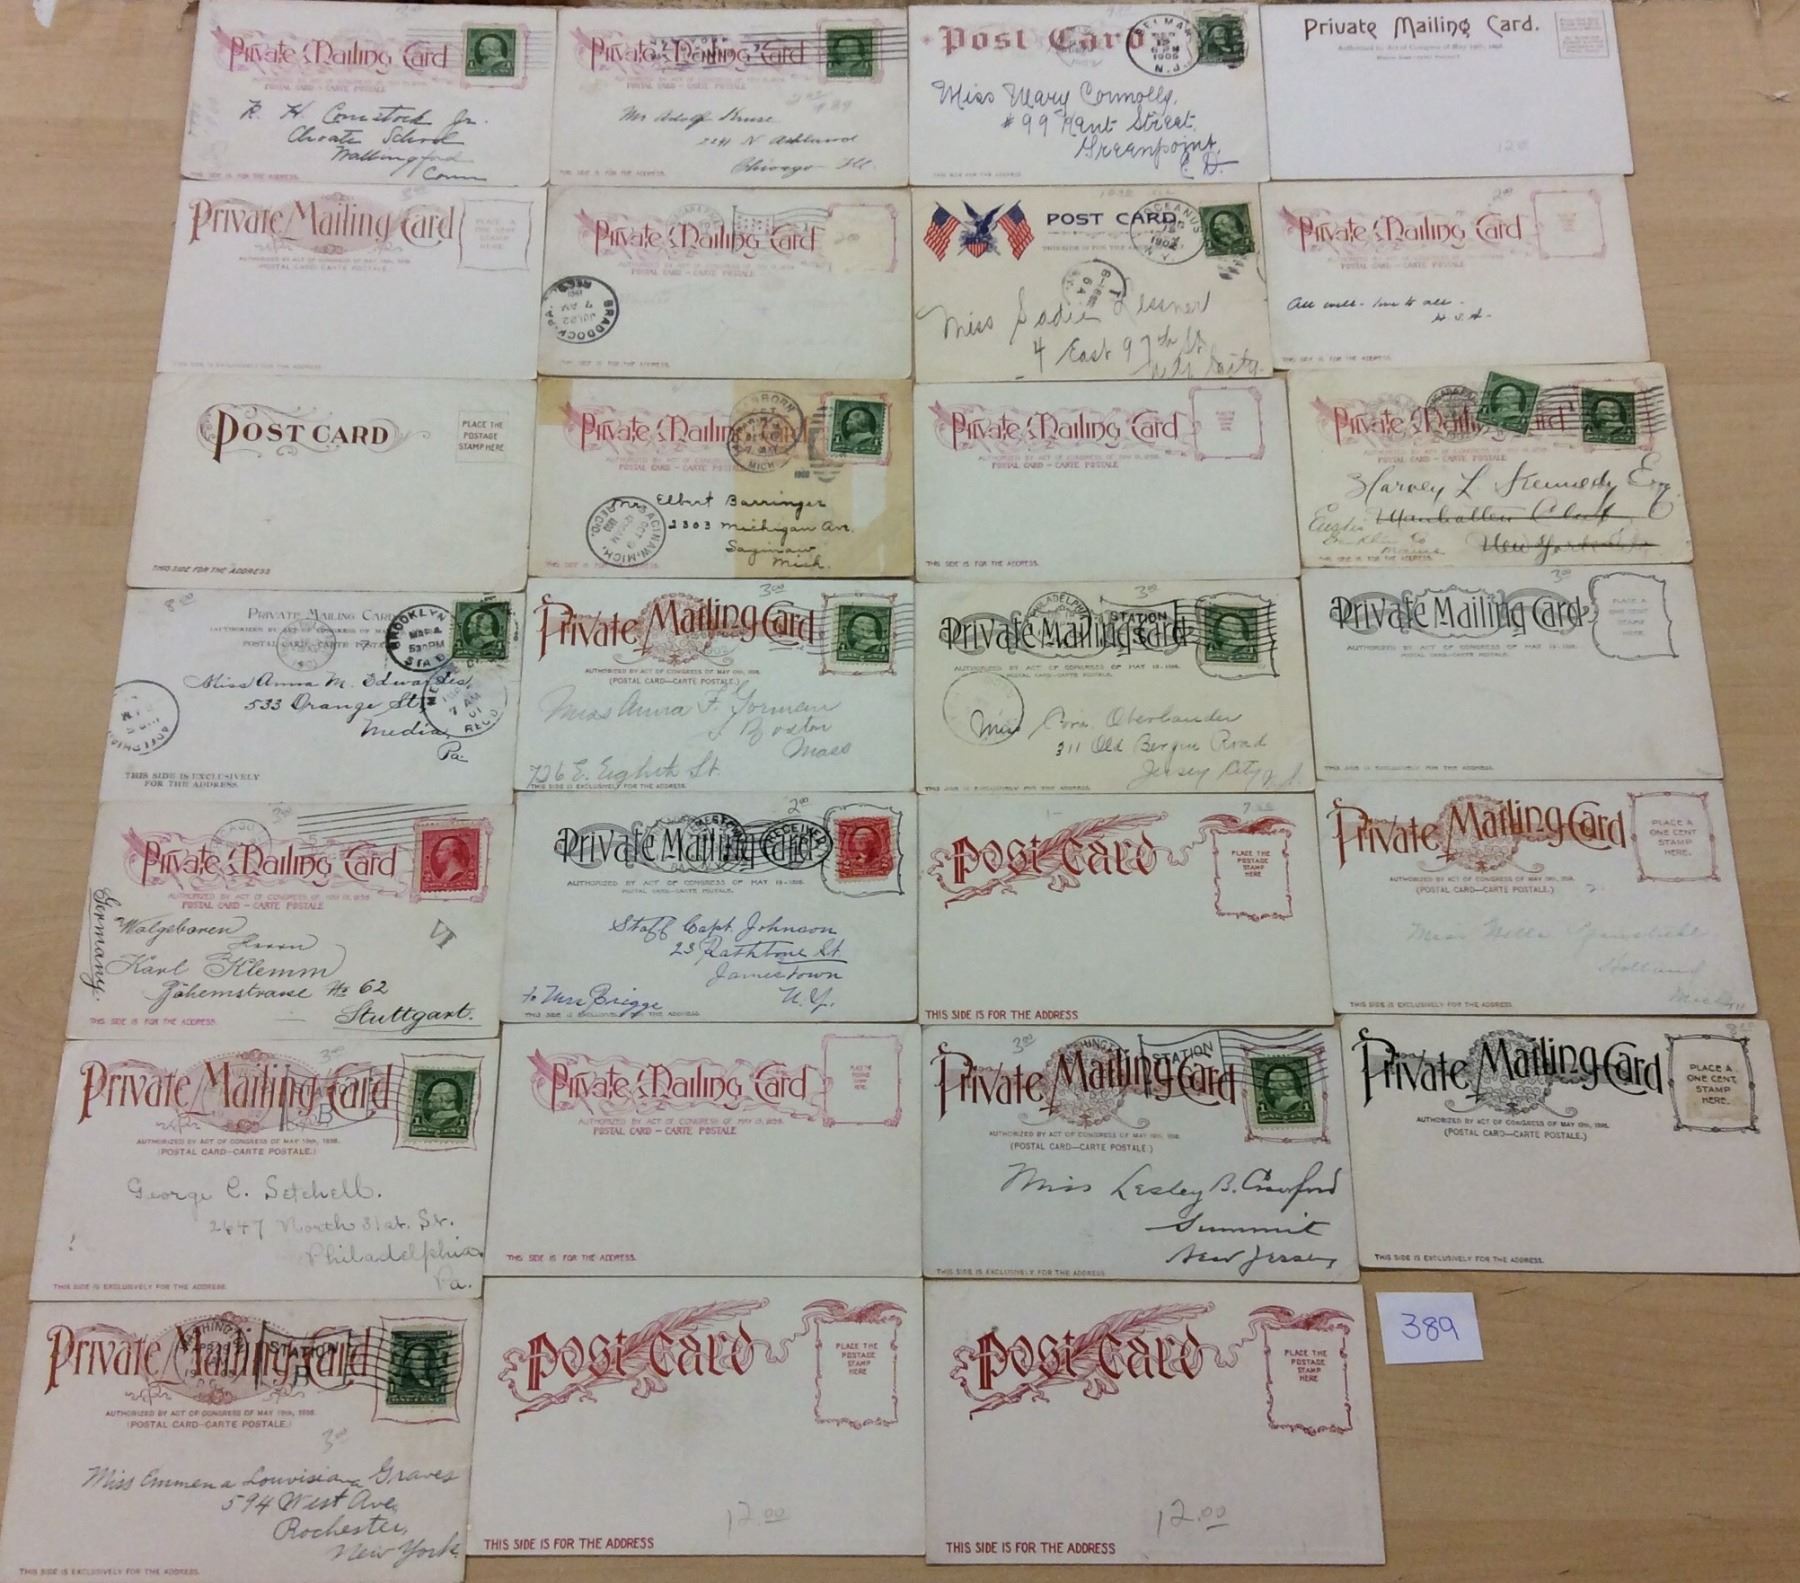 Private Mailing Card
POSTAL CARD - CARTE POSTALE
R. H. Comstock Jr.
Choate School
Wallingford
Conn
THIS SIDE IS FOR THE ADDRESS.
Private Mailing Card
POSTAL CARD - CARTE POSTALE
Mr Adolf Kruse
N Ashland
Chicago Ill.
THIS SIDE IS FOR THE ADDRESS.
Post Card
BELMAR
N.J.
1905
Miss Mary Connolly,
#99 Kent Street.
Greenpoint,
THIS SIDE FOR THE ADDRESS
Private Mailing Card.
Authorized by Act of Congress of May 19th, 1898.
Private Mailing Card
AUTHORIZED BY ACT OF CONGRESS OF MAY 19th, 1898.
(POSTAL CARD-CARTE POSTALE.)
PLACE A
ONE CENT
STAMP
HERE.
THIS SIDE IS EXCLUSIVELY FOR THE ADDRESS.
Private Mailing Card
POSTAL CARD - CARTE POSTALE
2.00
BRADDOCK, PA.
JUL 22
7 AM
1901
REC'D.
THIS SIDE IS FOR THE ADDRESS.
POST CARD
OCEANUS
Miss Sadie Lessner
4 East 97th St
Private Mailing Card
POSTAL CARD - CARTE POSTALE
THIS SIDE IS FOR THE ADDRESS.
POST CARD
PLACE THE
POSTAGE
STAMP HERE
THIS SIDE FOR THE ADDRESS
Private Mailing Card
POSTAL CARD - CARTE POSTALE
MICH
Mrs Elbert Barringer
2303 Michigan Av.
Saginaw
Mich.
SAGINAW, MICH.
REC'D.
THIS SIDE IS FOR THE ADDRESS.
Private Mailing Card
AUTHORIZED BY ACT OF CONGRESS OF MAY 19, 1898.
POSTAL CARD - CARTE POSTALE
THIS SIDE IS FOR THE ADDRESS.
Private Mailing Card
POSTAL CARD - CARTE POSTALE
Harvey L. Kennedy Esq
Manhattan Club
Eustis
Franklin Co
Maine
New York
THIS SIDE IS FOR THE ADDRESS.
8.00
PRIVATE MAILING CARD
BROOKLYN
5 30 PM
STA B
Miss Anna M. Edwards,
533 Orange St.
Media,
Pa.
7 AM
01
REC'D
THIS SIDE IS EXCLUSIVELY
FOR THE ADDRESS.
3.00
Private Mailing Card
AUTHORIZED BY ACT OF CONGRESS OF MAY 19th, 1898.
(POSTAL CARD-CARTE POSTALE.)
Miss Anna F. Gorman
S. Boston
Mass
726 E. Eighth St.
THIS SIDE IS EXCLUSIVELY FOR THE ADDRESS.
3.00
PHILADELPHIA
STATION
Private Mailing Card
AUTHORIZED BY ACT OF CONGRESS OF MAY 19-1898.
POSTAL CARD-CARTE POSTALE.
Miss Cora Oberlander
311 Old Bergen Road
Jersey City N.J.
THIS SIDE IS EXCLUSIVELY FOR THE ADDRESS.
3.00
Private Mailing Card
AUTHORIZED BY ACT OF CONGRESS OF MAY 19-1898.
POSTAL CARD-CARTE POSTALE.
PLACE A
ONE CENT
STAMP
HERE.
THIS SIDE IS EXCLUSIVELY FOR THE ADDRESS.
3.00
Private Mailing Card
AUTHORIZED BY ACT OF CONGRESS OF MAY 19, 1898
POSTAL CARD - CARTE POSTALE
Germany.
Karl Klemm
No 62
Stuttgart.
THIS SIDE IS FOR THE ADDRESS.
2.00
Private Mailing Card
RECEIVED
AUTHORIZED BY ACT OF CONGRESS OF MAY 19-1898.
POSTAL CARD-CARTE POSTALE.
Staff Capt. Johnson
23 Rathbone St
Jamestown
N.Y.
to Mrs Briggs
THIS SIDE IS EXCLUSIVELY FOR THE ADDRESS.
Post Card
PLACE THE
POSTAGE
STAMP
HERE
THIS SIDE IS FOR THE ADDRESS
Private Mailing Card
AUTHORIZED BY ACT OF CONGRESS OF MAY 19th, 1898.
(POSTAL CARD-CARTE POSTALE.)
PLACE A
ONE CENT
STAMP
HERE.
Holland
THIS SIDE IS EXCLUSIVELY FOR THE ADDRESS.
3.00
Private Mailing Card
AUTHORIZED BY ACT OF CONGRESS OF MAY 19th, 1898.
(POSTAL CARD-CARTE POSTALE.)
George C. Setchell.
2647 North 31st. St.
Philadelphia
Pa.
THIS SIDE IS EXCLUSIVELY FOR THE ADDRESS.
Private Mailing Card
AUTHORIZED BY ACT OF CONGRESS OF MAY 19, 1898.
POSTAL CARD - CARTE POSTALE
PLACE THE
POSTAGE
STAMP
HERE.
THIS SIDE IS FOR THE ADDRESS.
3.00
STATION
Private Mailing Card
AUTHORIZED BY ACT OF CONGRESS OF MAY 19th, 1898.
(POSTAL CARD-CARTE POSTALE.)
Miss Lesley B. Crawford
Summit
New Jersey
THIS SIDE IS EXCLUSIVELY FOR THE ADDRESS.
Private Mailing Card
AUTHORIZED BY ACT OF CONGRESS OF MAY 19th, 1898.
(POSTAL CARD-CARTE POSTALE.)
PLACE A
ONE CENT
STAMP
HERE.
THIS SIDE IS EXCLUSIVELY FOR THE ADDRESS.
Private Mailing Card
STATION
AUTHORIZED BY ACT OF CONGRESS OF MAY 19th, 1898.
(POSTAL CARD-CARTE POSTALE.)
3.00
Miss Emmena Louvisiana Graves
594 West Ave,
Rochester,
New York.
THIS SIDE IS EXCLUSIVELY FOR THE ADDRESS.
Post Card
PLACE THE
POSTAGE
STAMP
HERE
12.00
THIS SIDE IS FOR THE ADDRESS
Post Card
PLACE THE
POSTAGE
STAMP
HERE
12.00
THIS SIDE IS FOR THE ADDRESS
389